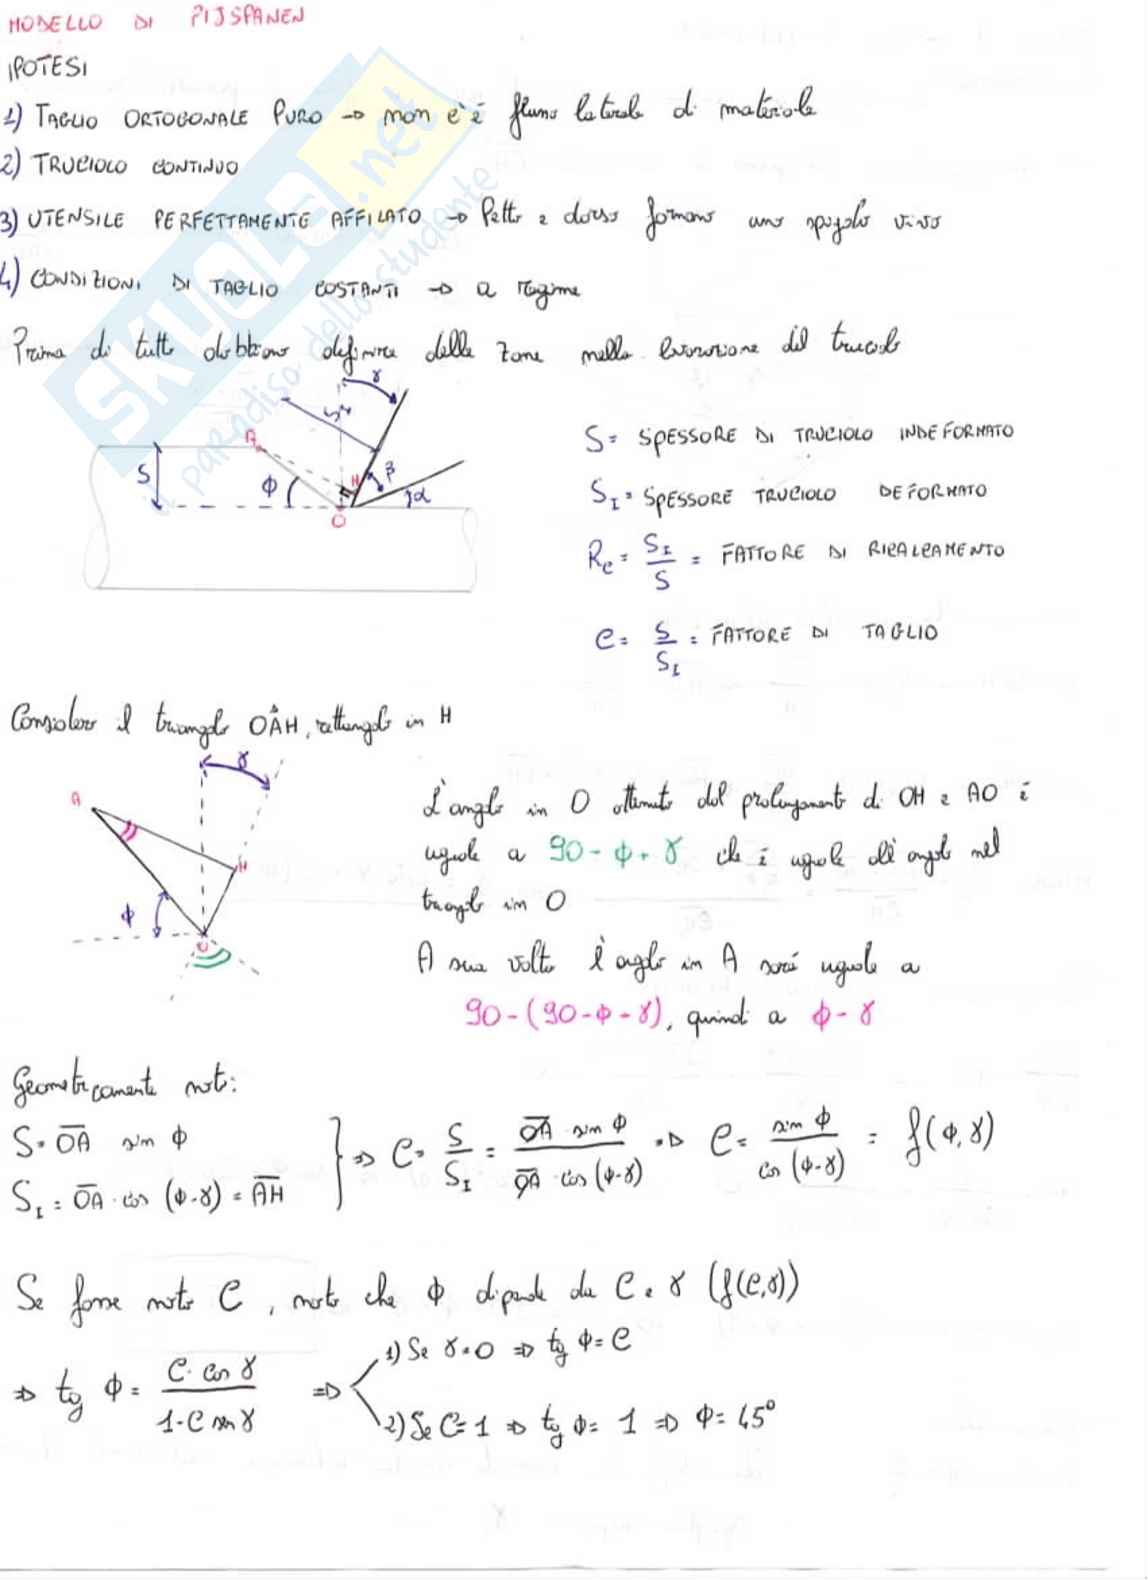 MODELLO DI PIJSPANEN
IPOTESI
1) TAGLIO ORTOGONALE PURO → non c'è flusso laterale di materiale
2) TRUCIOLO CONTINUO
3) UTENSILE PERFETTAMENTE AFFILATO → Petto e dorso formano uno spigolo vivo
4) CONDIZIONI DI TAGLIO COSTANTI → a regime
Prima di tutto dobbiamo definire delle zone nella lavorazione del truciolo
SKUOLA.net
il paradiso dello studente
γ
A
S
ϕ
H
β
α
O
S = SPESSORE DI TRUCIOLO INDEFORMATO
S_I = SPESSORE TRUCIOLO DEFORMATO
R_c = S_I / S = FATTORE DI RICALCAMENTO
C = S / S_I = FATTORE DI TAGLIO
Considero il triangolo OÂH, rettangolo in H
γ
A
H
ϕ
O
L'angolo in O ottenuto dal prolungamento di OH e AO è
uguale a 90 - ϕ + γ che è uguale all'angolo nel
triangolo in O
A sua volta l'angolo in A sarà uguale a
90 - (90 - ϕ - γ), quindi a ϕ - γ
Geometricamente noto:
S = OA sin ϕ
S_I = OA · cos (ϕ - γ) = AH
⇒ C = S / S_I = OA · sin ϕ / OA · cos (ϕ - γ) ⇒ C = sin ϕ / cos (ϕ - γ) = f(ϕ, γ)
Se fosse noto C, noto che ϕ dipende da C e γ (f(C, γ))
⇒ tg ϕ = C · cos γ / 1 - C sen γ ⇒
1) Se γ = 0 ⇒ tg ϕ = C
2) Se C = 1 ⇒ tg ϕ = 1 ⇒ ϕ = 45°